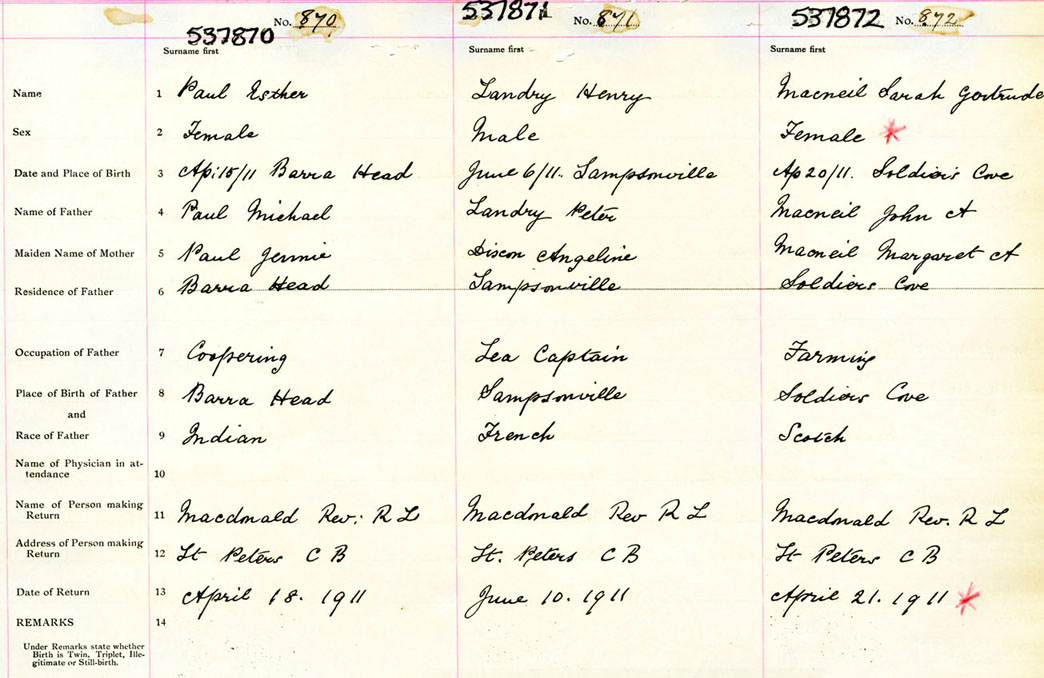 537870 No. 870 537871 No. 871 537872 No. 872
Surname first Surname first Surname first
Name 1 Paul Esther Landry Henry Macneil Sarah Gertrude
Sex 2 Female Male Female *
Date and Place of Birth 3 Ap: 15/11 Barra Head June 6/11. Sampsonville Ap 20/11. Soldiers Cove
Name of Father 4 Paul Michael Landry Peter Macneil John A
Maiden Name of Mother 5 Paul Jennie Angeline Macneil Margaret A
Residence of Father 6 Barra Head Sampsonville Soldiers Cove
Occupation of Father 7 Coopering Sea Captain Farming
Place of Birth of Father 8 Barra Head Sampsonville Soldiers Cove
and
Race of Father 9 Indian French Scotch
Name of Physician in at-
tendance 10
Name of Person making
Return 11 Macdonald Rev: R L Macdonald Rev R L Macdonald Rev. R L
Address of Person making
Return 12 St Peters C B St. Peters C B St Peters C B
Date of Return 13 April 18. 1911 June 10. 1911 April 21. 1911 *
REMARKS 14
Under Remarks state whether
Birth is Twin, Triplet, Ille-
gitimate or Still-birth.